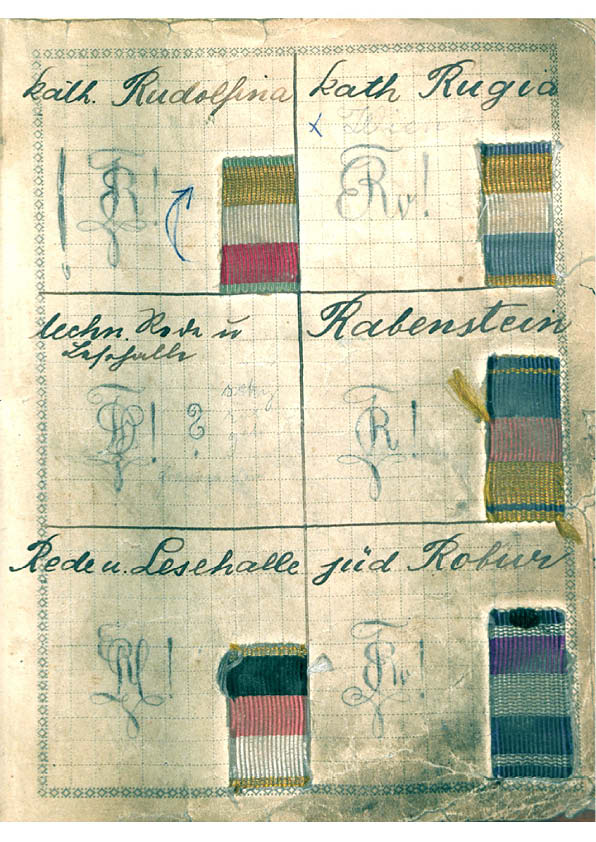 kath. Rudolfina
kath Rugia
x Wien
! R!
Rv!
techn. Rede u
Lesehalle
Rabenstein
! ?
R!
Rede u. Lesehalle
jüd Robur
RL!
Rv!